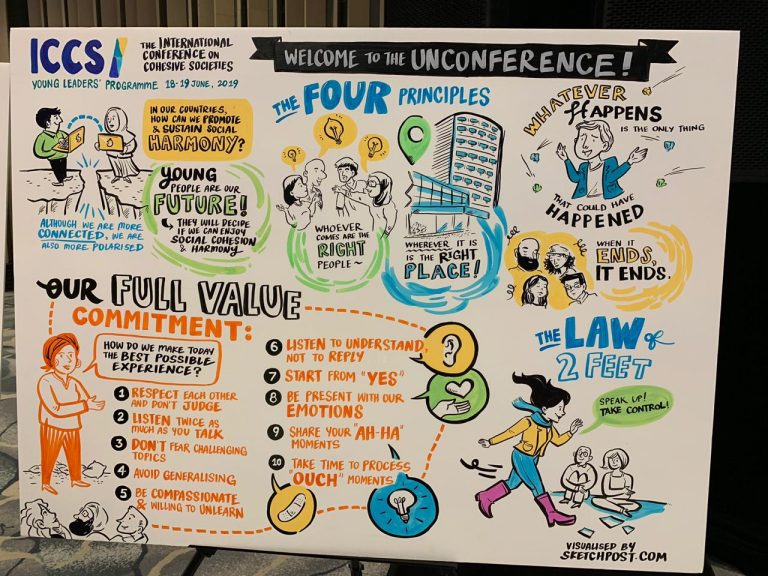 ICCS
THE INTERNATIONAL
CONFERENCE ON
COHESIVE SOCIETIES
YOUNG LEADERS' PROGRAMME 18-19 JUNE, 2019
WELCOME TO THE UNCONFERENCE!
IN OUR COUNTRIES,
HOW CAN WE PROMOTE
& SUSTAIN SOCIAL
HARMONY?
YOUNG
PEOPLE ARE OUR
FUTURE!
THEY WILL DECIDE
IF WE CAN ENJOY
SOCIAL COHESION
& HARMONY
ALTHOUGH WE ARE MORE
CONNECTED, WE ARE
ALSO MORE POLARISED
THE FOUR PRINCIPLES
WHOEVER
COMES ARE THE
RIGHT
PEOPLE~
WHEREVER IT IS
IS THE RIGHT
PLACE!
WHATEVER
HAPPENS
IS THE ONLY THING
THAT COULD HAVE
HAPPENED
WHEN IT
ENDS,
IT ENDS.
OUR FULL VALUE
COMMITMENT:
HOW DO WE MAKE TODAY
THE BEST POSSIBLE
EXPERIENCE?
1 RESPECT EACH OTHER
AND DON'T JUDGE
2 LISTEN TWICE AS
MUCH AS YOU TALK
3 DON'T FEAR CHALLENGING
TOPICS
4 AVOID GENERALISING
5 BE COMPASSIONATE
& WILLING TO UNLEARN
6 LISTEN TO UNDERSTAND,
NOT TO REPLY
7 START FROM "YES"
8 BE PRESENT WITH OUR
EMOTIONS
9 SHARE YOUR "AH-HA"
MOMENTS
10 TAKE TIME TO PROCESS
"OUCH" MOMENTS
THE LAW of
2 FEET
SPEAK UP!
TAKE CONTROL!
VISUALISED BY
SKETCHPOST.COM